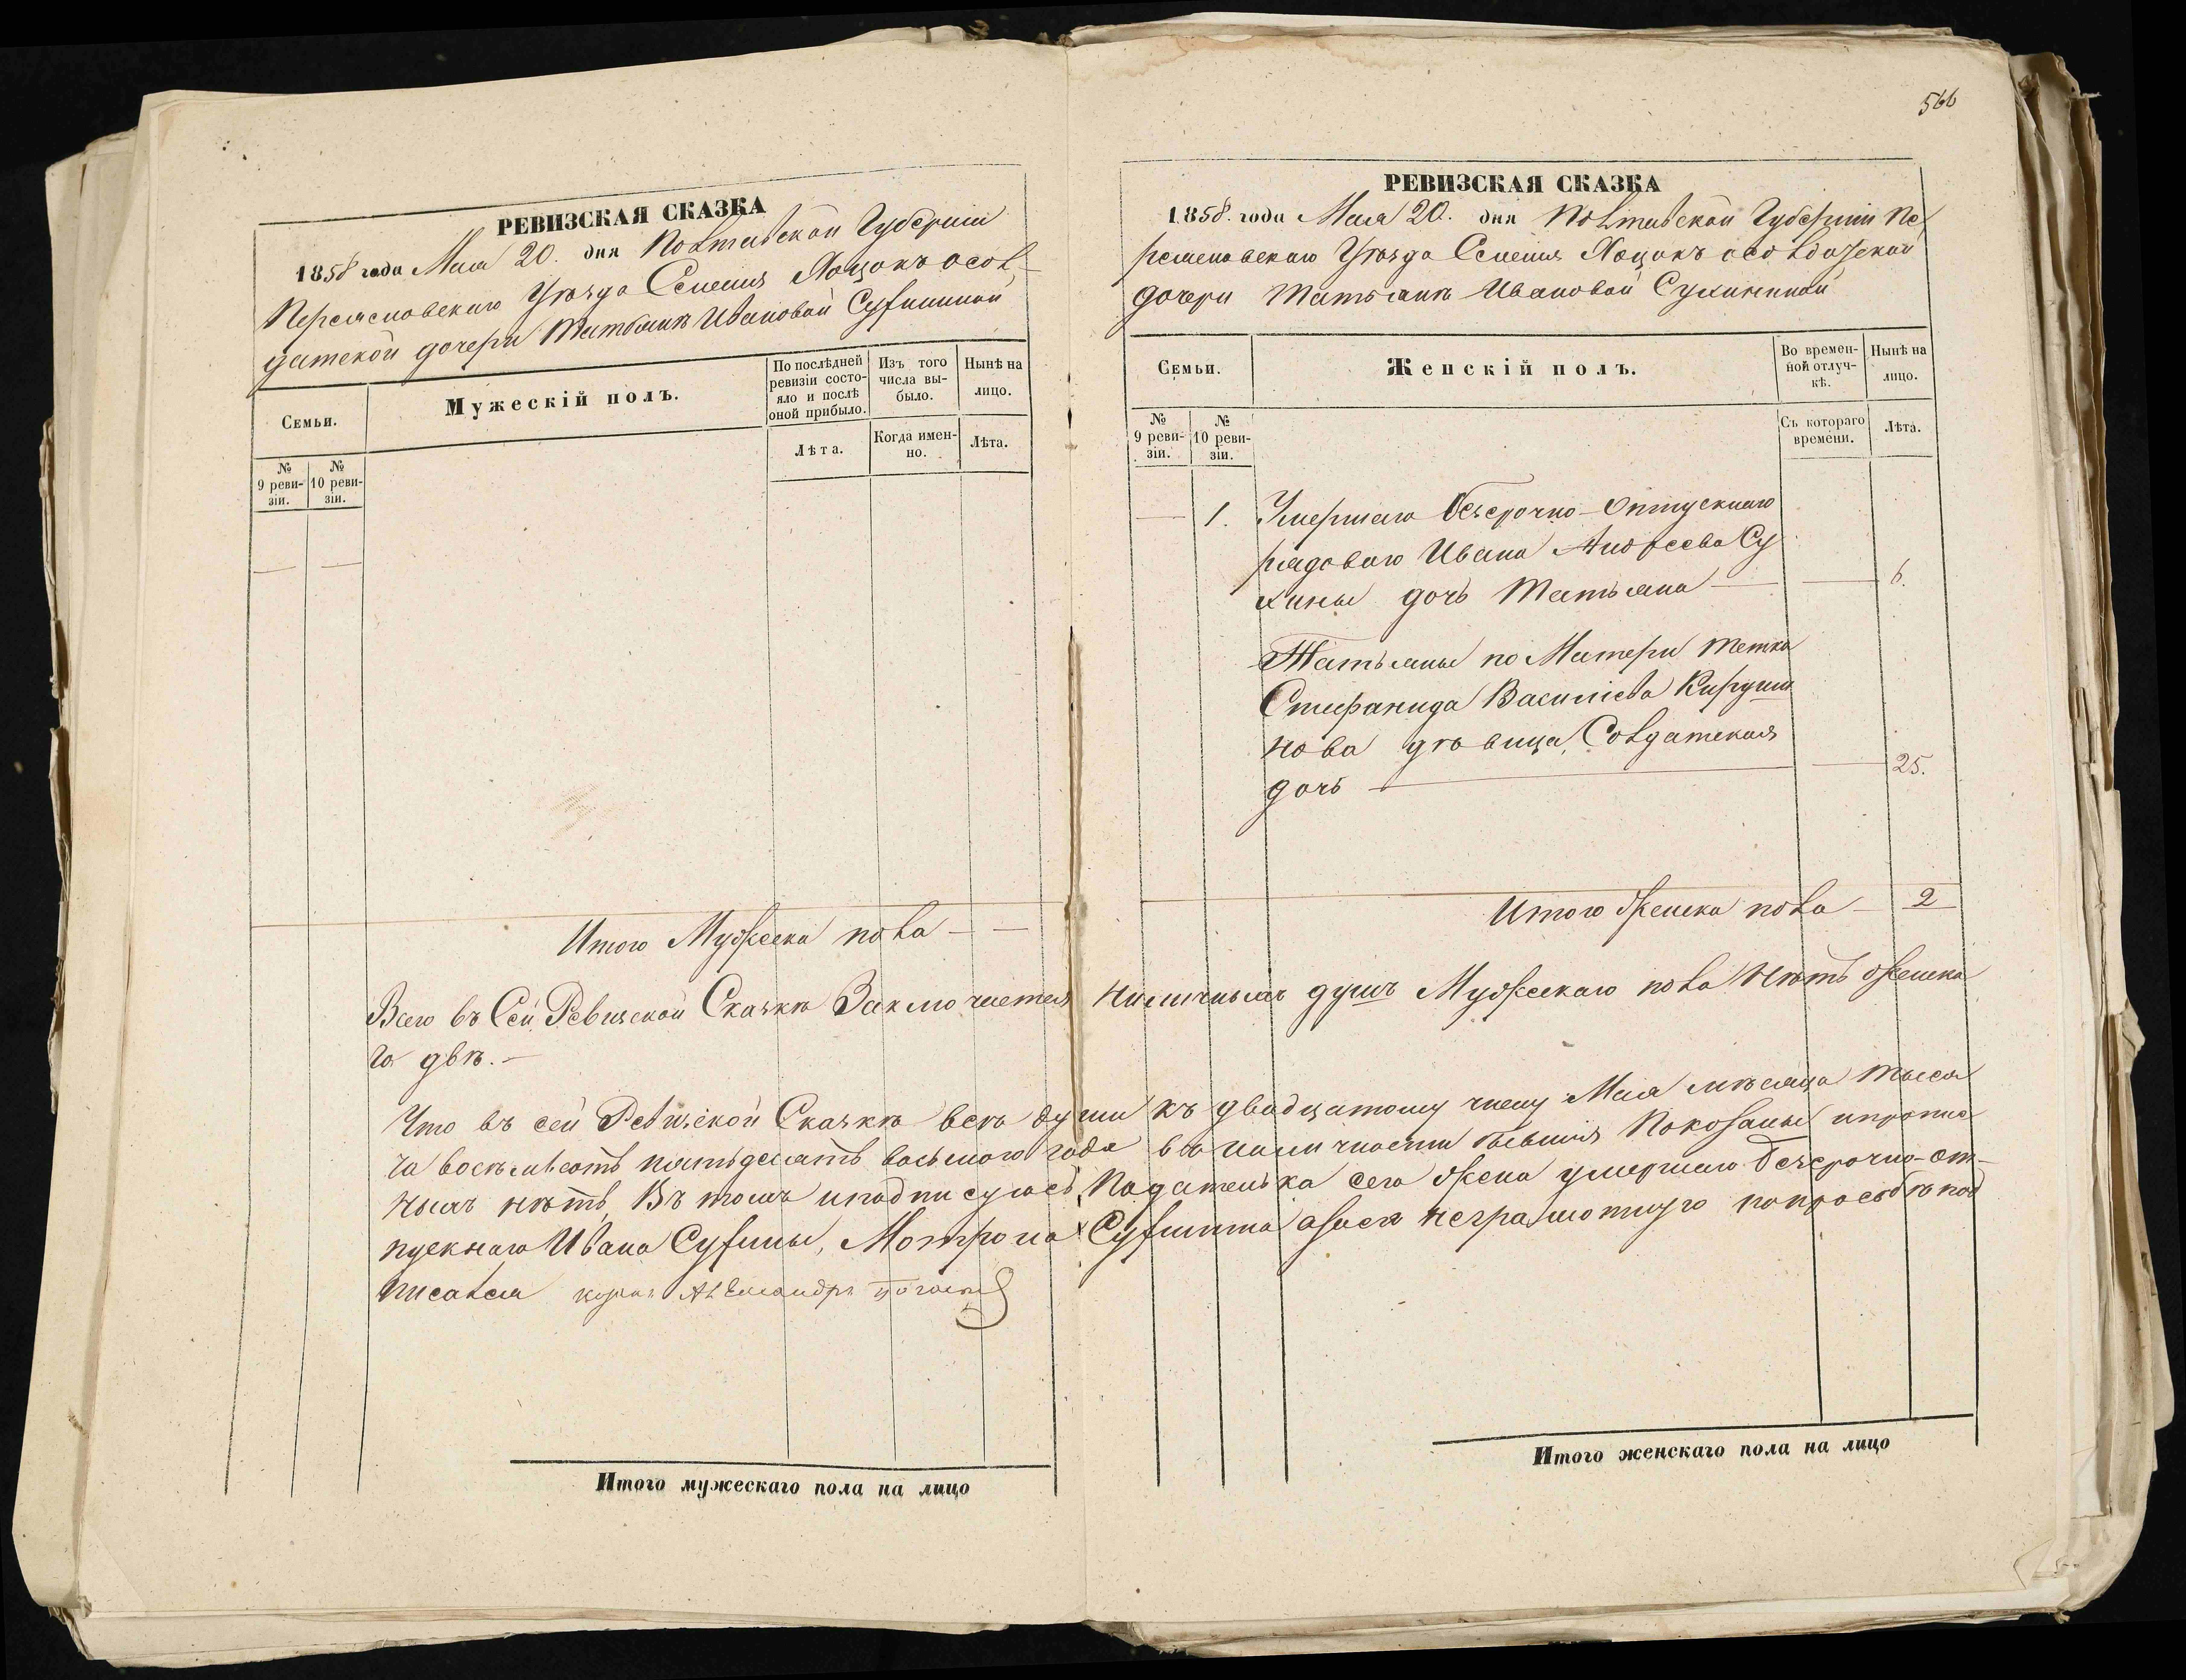 РЕВИЗСКАЯ СКАЗКА
1858 года Мая 20. дня Полтавской Губерніи
Переяславскаго Уѣзда Селенія Хоцокъ о сол-
датской дочери Татьянѣ Ивановой
Семьи.
Мужескій полъ.
По послѣдней ревизіи состояло и послѣ оной прибыло.
Изъ того числа выбыло.
Нынѣ на лицо.
№ 9 ревизіи.
№ 10 ревизіи.
Лѣта.
Когда именно.
Лѣта.
Итого Мужеска пола — —
566
РЕВИЗСКАЯ СКАЗКА
1858. года Мая 20. дня Полтавской Губерніи Пе
реяславскаго Уѣзда Селенія Хоцокъ о солдатской
дочери Татьянѣ Ивановой
Семьи.
Женскій полъ.
Во временной отлучкѣ.
Нынѣ на лицо.
№ 9 ревизіи.
№ 10 ревизіи.
Съ котораго времени.
Лѣта.
1. Умершаго безсрочно-отпускнаго
рядоваго Ивана Андреева Су
хины дочь Татьяна — 6.
Татьяны по Матери тетка
Стефанида Василіева
нова дѣвица, Солдатская
дочь — 25.
Итого Женска пола — 2
Всего въ Сей Ревизской Сказкѣ Заключается Наличныхъ душъ Мужескаго пола Нѣтъ Женска
го двѣ.—
Что въ сей Ревизской Сказкѣ всѣ души къ двадцатому числу Мая мѣсяца тыся
ча восемьсотъ пятьдесятъ восьмого года въ наличности бывшія Показаны и пропис
ныхъ нѣтъ, Въ томъ и подписуюсь, Подателька сего Жена умершаго безсрочно-от-
пускнаго Ивана Сухины, Мотрона неграмотную по просьбѣ под
писался Александръ
Итого мужескаго пола на лицо
Итого женскаго пола на лицо